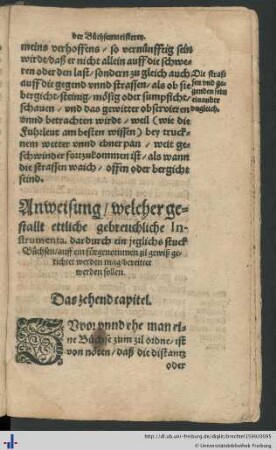 der Büchsenmeisterey.
meins verhoffens / so vernünfftig sein
wirdt / daß er nicht allein auff die schwe-
ren oder den last / sondern zu gleich auch
auff die gegend vnnd strassen / als ob sie
bergicht / steinig / mösig oder sumpficht /
schauen / vnd das gewitter observieren
vnnd betrachten wirdt / weil (wie die
Fuhrleut am besten wissen) bey truck-
nem wetter vnnd ebner pan / weit ge-
schwinder fortzukommen ist / als wann
die strassen waich / offen oder bergicht
sind.
Die straß
sen vnd ge-
genden sein
einander
vngleich.
Anweisung / welcher ge-
stallt ettliche gebreuchliche In-
strumenta, dardurch ein jeglichs stuck
Büchsen / auff ein fürgenommen zil gewiß ge-
richtet werden mag / bereittet
werden sollen.
Das zehend capitel.
ZVvor vnnd ehe man ei-
ne Büchse zum zil ördne / ist
von nöten / daß die distantz
oder
http://dl.ub.uni-freiburg.de/diglit/brechtel1599/0095
© Universitätsbibliothek Freiburg